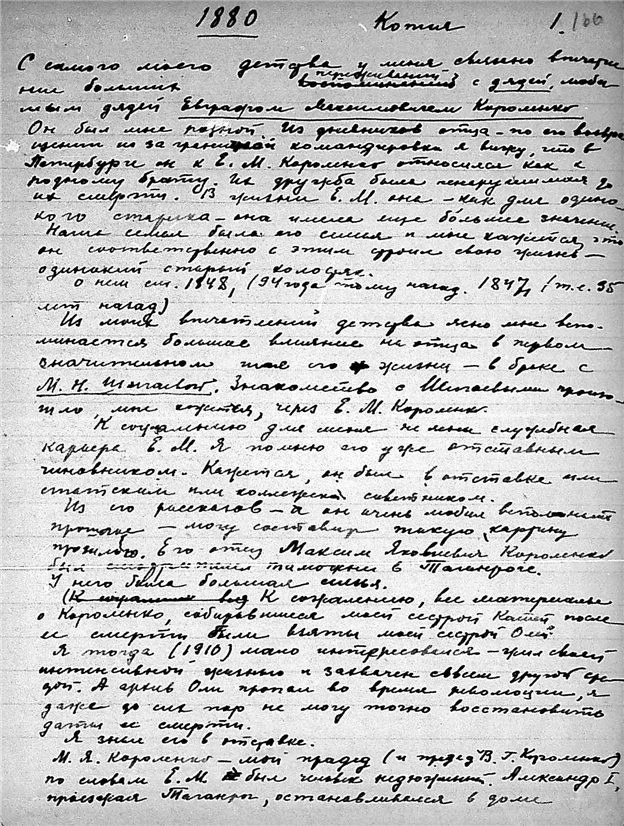 1880 Копия 1. 166
С самого моего детства у меня связано впечатле
ние больших переживаний с дядей, люби
мым дядей Евграфом Максимовичем Короленко
Он был мне родной. Из дневников отца - по его возвра
щении из заграничной командировки я вижу, что в
Петербурге он к Е. М. Короленко относился как к
родному брату. Их дружба была ненарушимая до
их смерти. В жизни Е. М. она - как для одино-
кого старика - она имела еще большее значение
Наша семья была его семья и мне кажется, что
он соответственно с этим строил свою жизнь -
одинокий старый холостяк.
о нем см. 1848, (94 года тому назад. 1847, (т.е. 95
лет назад)
Из моих впечатлений детства ясно мне вспо-
минается большое влияние на отца в первом
значительном его жизни - в браке с
М. Н. Шеталовой. Знакомство с произо-
шло, мне кажется, через Е. М. Короленко.
К сожалению для меня не ясна служебная
карьера Е. М. Я помню его уже отставным
чиновником. Кажется, он был в отставке или
статским или коллежским советником.
Из его рассказов - а он очень любил вспоминать
прошлое - могу составить такую картину
прошлого. Его отец Максим Яковлевич Короленко
был таможни в Таганроге.
У него была большая семья.
(К сожалению все К сожалению, все материалы
о Короленко, собиравшиеся моей сестрой Катей после
ее смерти были взяты моей сестрой Олей.
Я тогда (1910) мало интересовался - жил своей
интенсивной жизнью и захвачен был другой сре-
дой. А архив Оли пропал во время революции, я
даже до сих пор не могу точно восстановить
даты ее смерти.
Я знал его в отставке.
М. Я. Короленко - мой прадед (и прадед В. Г. Короленко)
по словам Е. М. был человек недюжинный. Александр I,
проезжая Таганрог, останавливался в доме